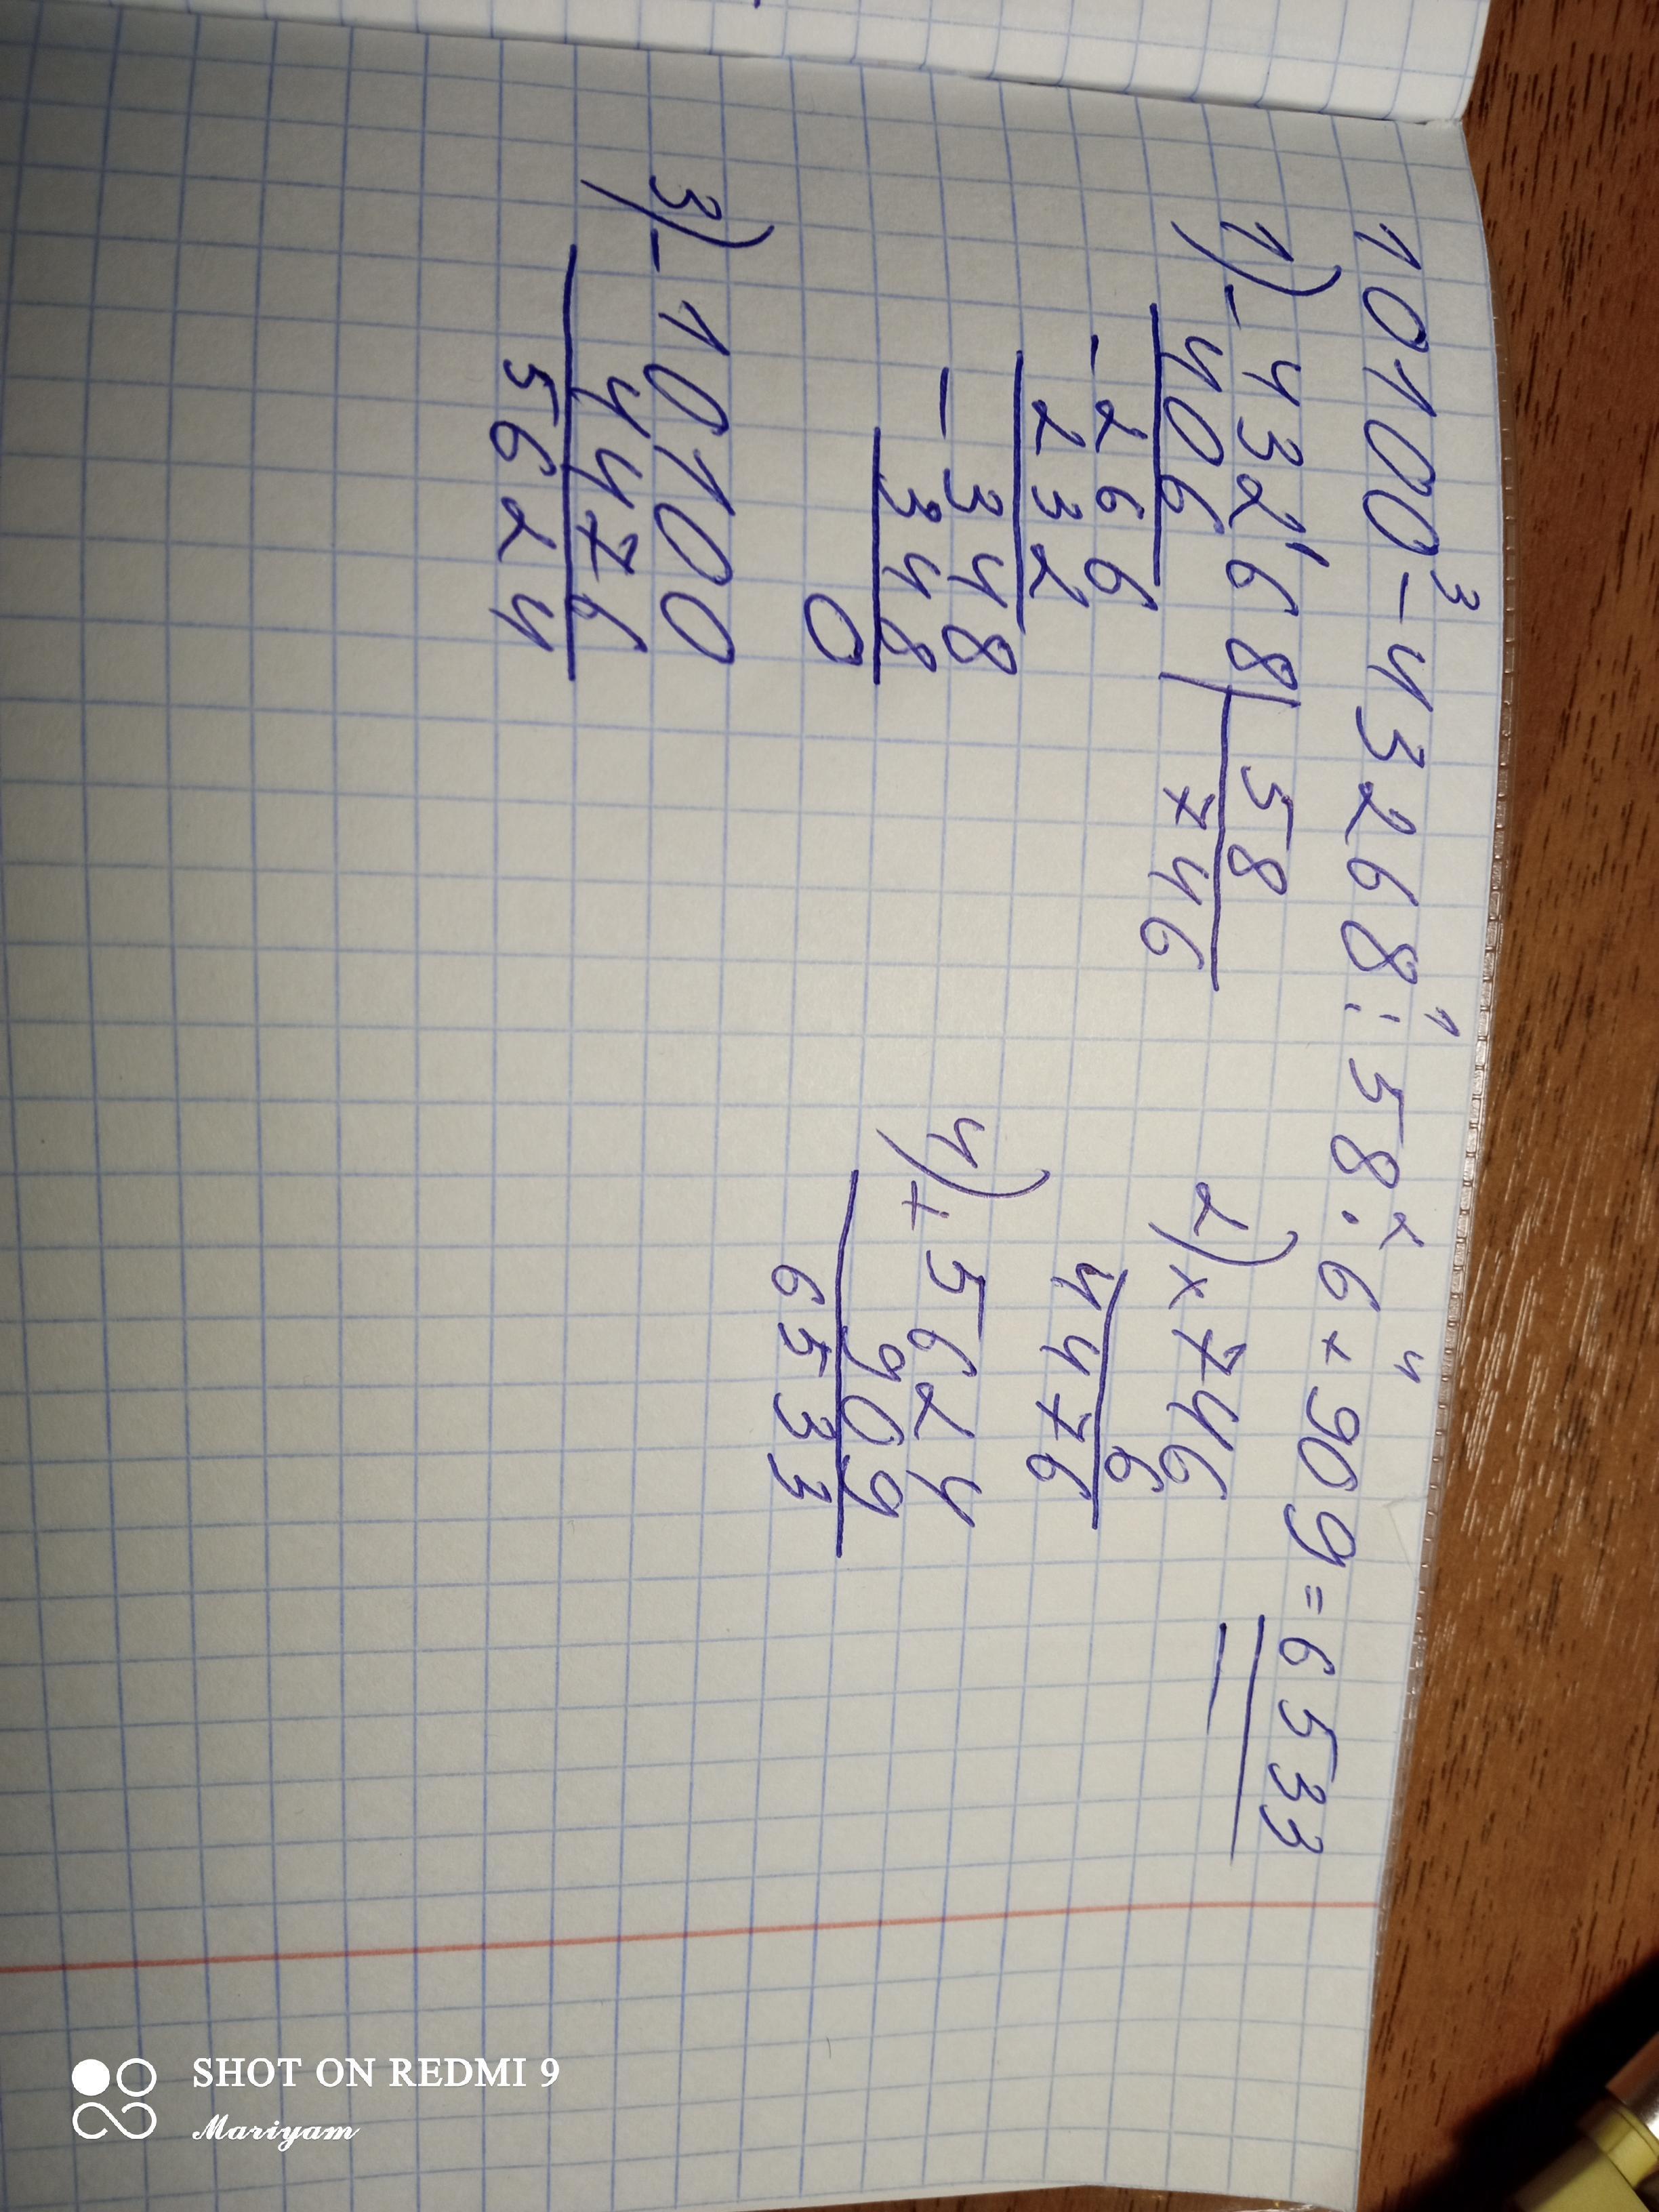 10100 - 43268 : 58 · 6 + 909 = 6533
3 1 2 4
1) - 43268 | 58
406 746
- 266
232
- 348
348
0
2) × 746
6
4476
3) - 10100
4476
5624
4) + 5624
909
6533
SHOT ON REDMI 9
Mariyam